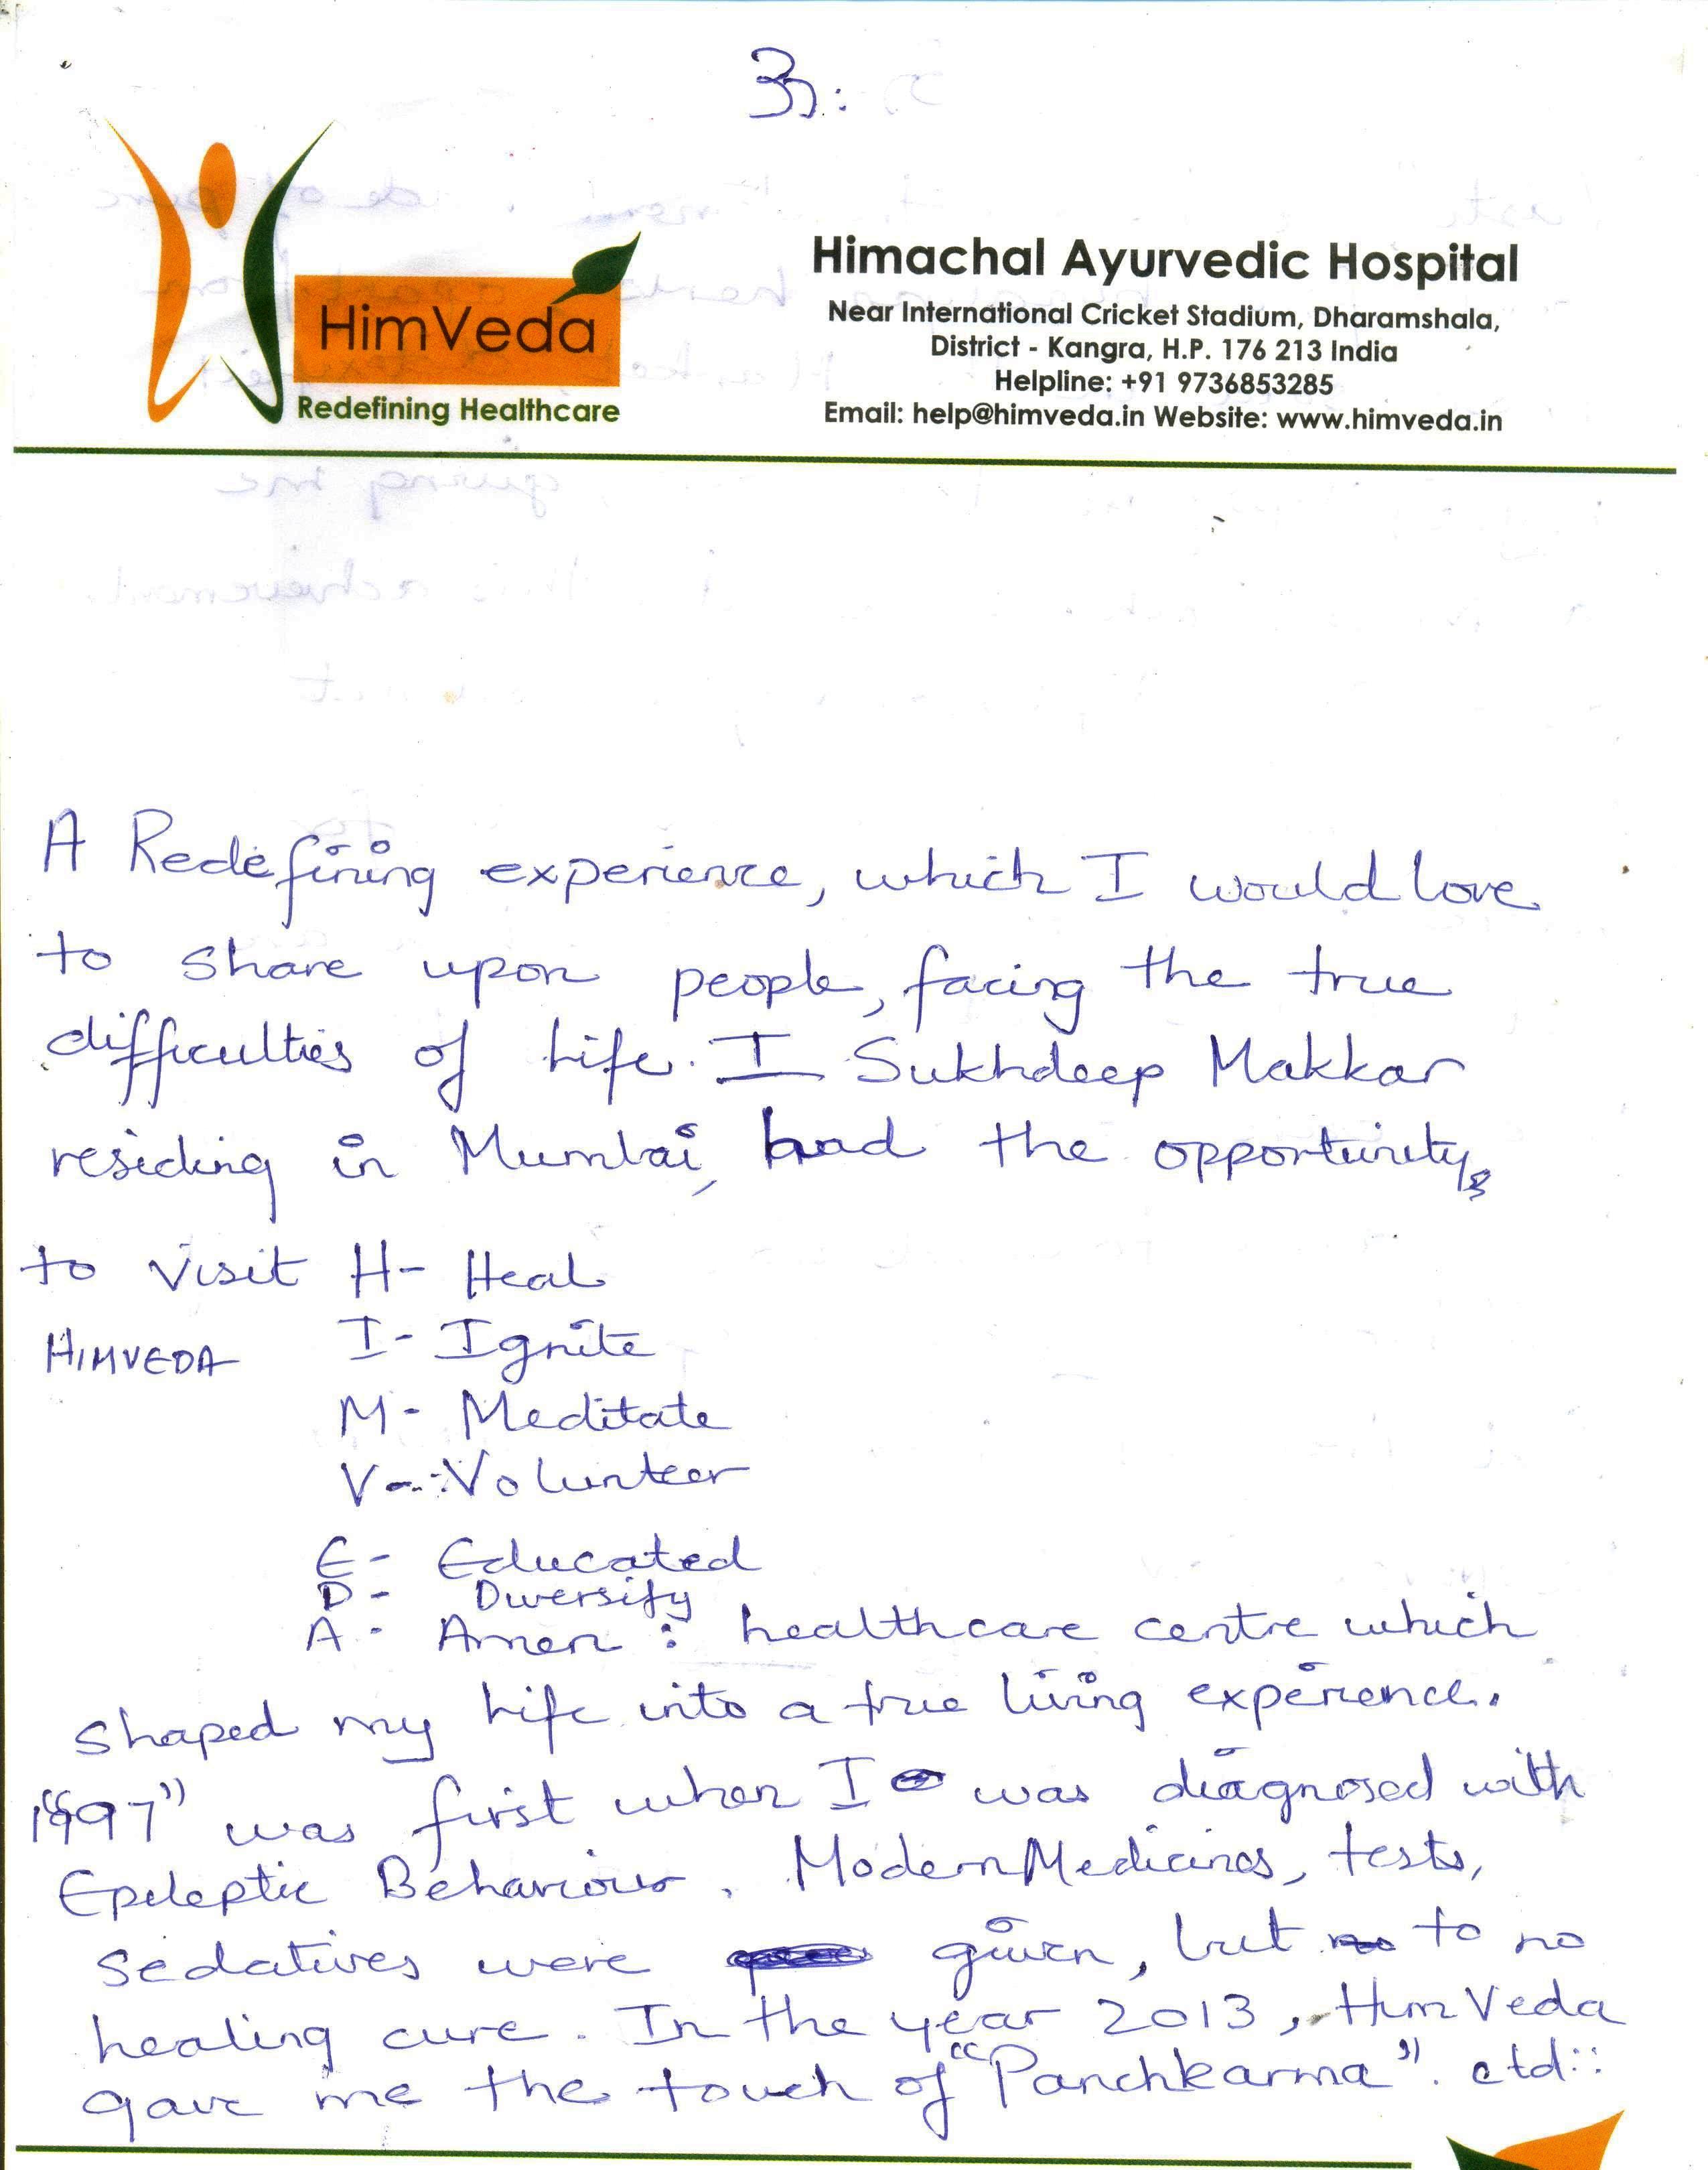 ૐ:
HimVeda
Redefining Healthcare
Himachal Ayurvedic Hospital
Near International Cricket Stadium, Dharamshala,
District - Kangra, H.P. 176 213 India
Helpline: +91 9736853285
Email: help@himveda.in Website: www.himveda.in
A Redefining experience, which I would love
to share upon people, facing the true
difficulties of life. I Sukhdeep Makkar
residing in Mumbai, had the opportunity
to visit H- Heal
HIMVEDA I- Ignite
M- Meditate
V-: Volunteer
E- Educated
D- Diversify
A- Amen : healthcare centre which
shaped my life into a true living experience.
"1997" was first when I was diagnosed with
Epileptic Behaviour. Modern Medicines, tests,
sedatives were given, but to no
healing cure. In the year 2013, HimVeda
gave me the touch of "Panchkarma". ctd::